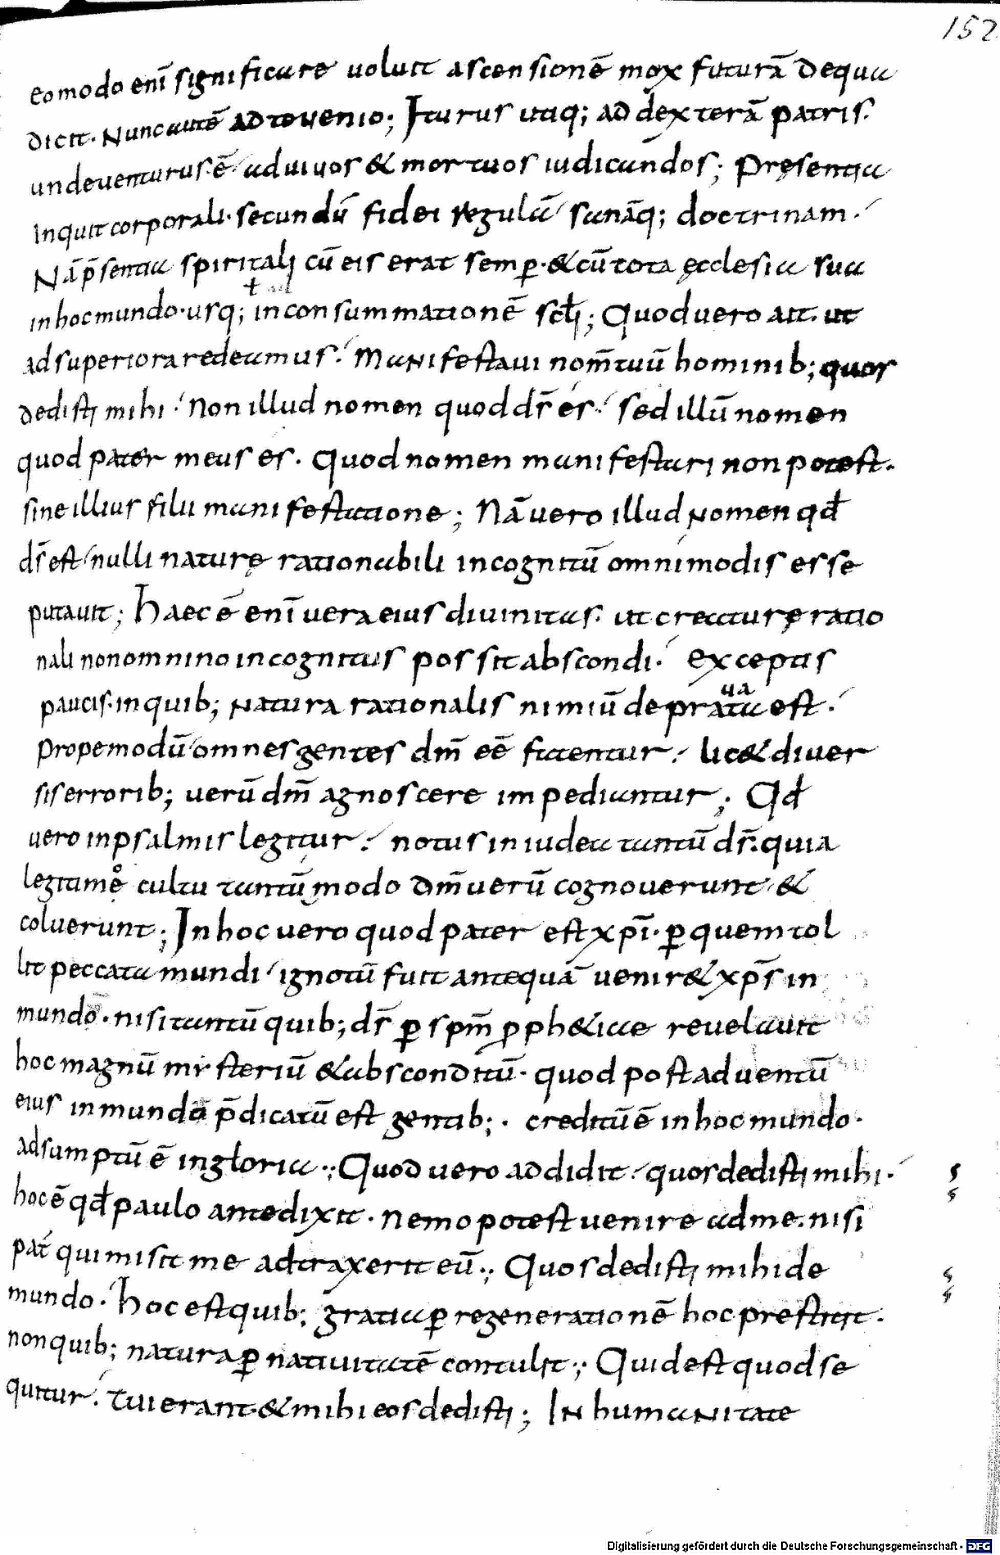 152
eo modo enī significare uoluit ascensionē mox futurā de qua
dicit. Nunc autē ad te uenio; Iturus utiq; ad dexterā patris.
unde uenturus. ē ad uiuos & mortuos iudicandos; Pręsentia
inquit corporali. secundū fidei regulā sanāq; doctrinam.
Nā p̄sentia spiritali cū eis erat semp̱. & cū tota ęcclesia sua
in hoc mundo. usq; in consummationē scłi; Quod uero ait. ut
ad superiora redeamus. Manifestaui nom̄ tuū hominib; quos
dedisti mihi. Non illud nomen quod dſ̄ es. sed illū nomen
quod pater meus es. Quod nomen manifestari non potest.
sine illius filii manifestatione; Nā uero illud nomen qđ
dſ̄ est nulli naturę rationabili incognitū omnimodis esse
putauit; Haec ē enī uera eius diuinitas. ut creaturę ratio
nali non omnino incognitus possit abscondi. Exceptis
paucis. in quib; natura rationalis nimiū deprauata est.
Propemodū omnes gentes dm̄ eē fatentur. lic& diuer
sis errorib; uerū dm̄ agnoscere impediantur; Qđ
uero in psalmis legitur. notus in iudea tantū dſ̄. quia
legitimo cultu tantūmodo dm̄ uerū cognouerunt. &
coluerunt; In hoc uero quod pater est xp̄i. p̱ quem tol
lit peccata mundi ignotū fuit antequā uenir& xp̄s in
mundo. nisi tantū quib; dſ̄ p̱ spm̄ proph&iae reuelauit
hoc magnū mysteriū & absconditū. quod post aduentū
eius in mundo p̄dicatū est gentib;. creditū ē in hoc mundo.
adsumptū ē in gloria.; Quod uero addidit. quos dedisti mihi.
hoc ē qđ paulo ante dixit. Nemo potest uenire ad me. nisi
pat̄ qui misit me adtraxerit eū.; Quos dedisti mihi de
mundo. Hoc est quib; gratia p̱ regenerationē hoc prestitit.
non quib; natura p̱ natiuitatē contulit.; Quid est quod se
quitur. Tui erant. & mihi eos dedisti; In humanitate
Digitalisierung gefördert durch die Deutsche Forschungsgemeinschaft - DFG